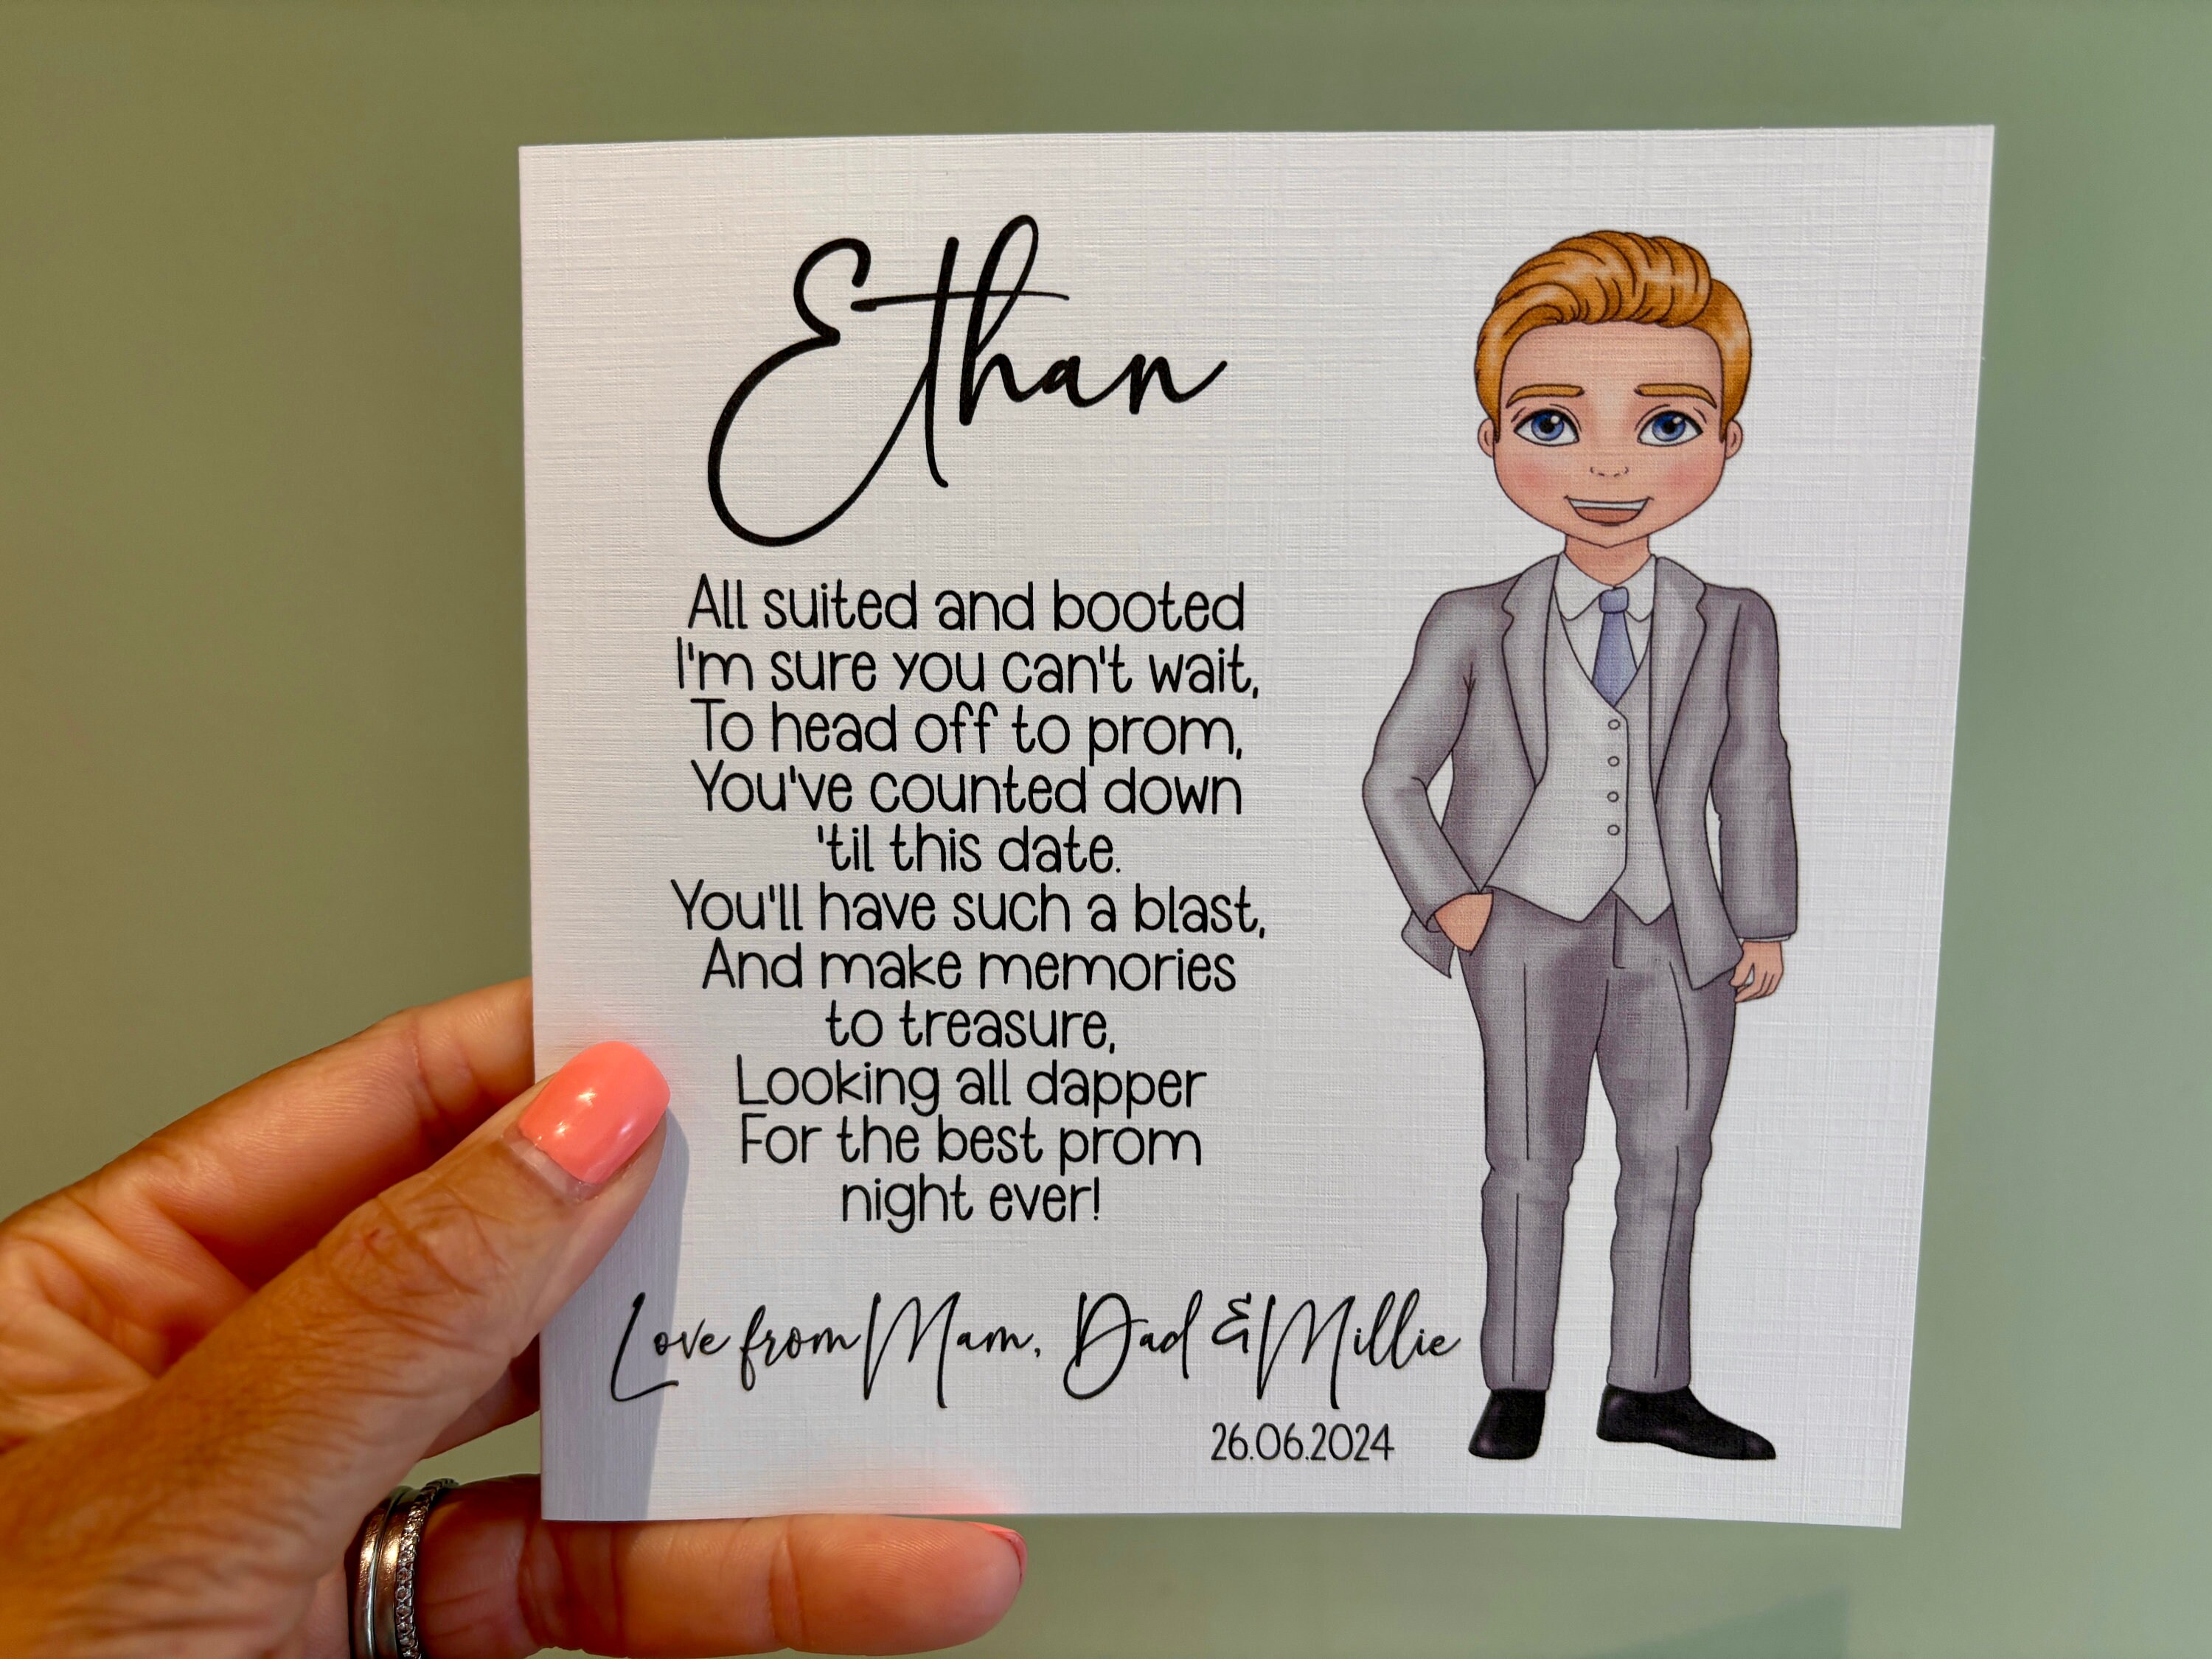 Ethan
All suited and booted
I'm sure you can't wait,
To head off to prom,
You've counted down
'til this date.
You'll have such a blast,
And make memories
to treasure,
Looking all dapper
For the best prom
night ever!
Love from Mam, Dad & Millie
26.06.2024